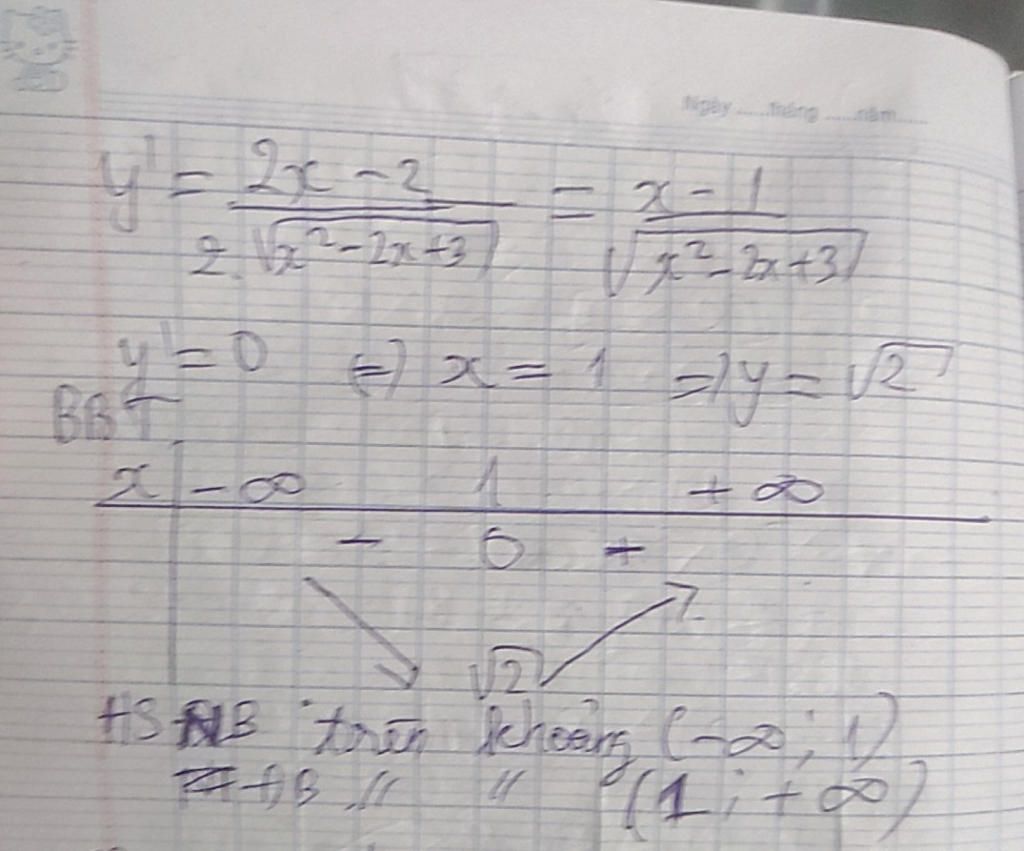 Ngày ......tháng ......năm......
y' = (2x - 2)/(2.√(x² - 2x + 3)) = (x - 1)/√(x² - 2x + 3)
y' = 0 (=) x = 1 =) y = √2
BBT
x | -∞ 1 +∞
- 0 +
√2
HS NB trên khoảng (-∞; 1)
ĐB // // (1; +∞)